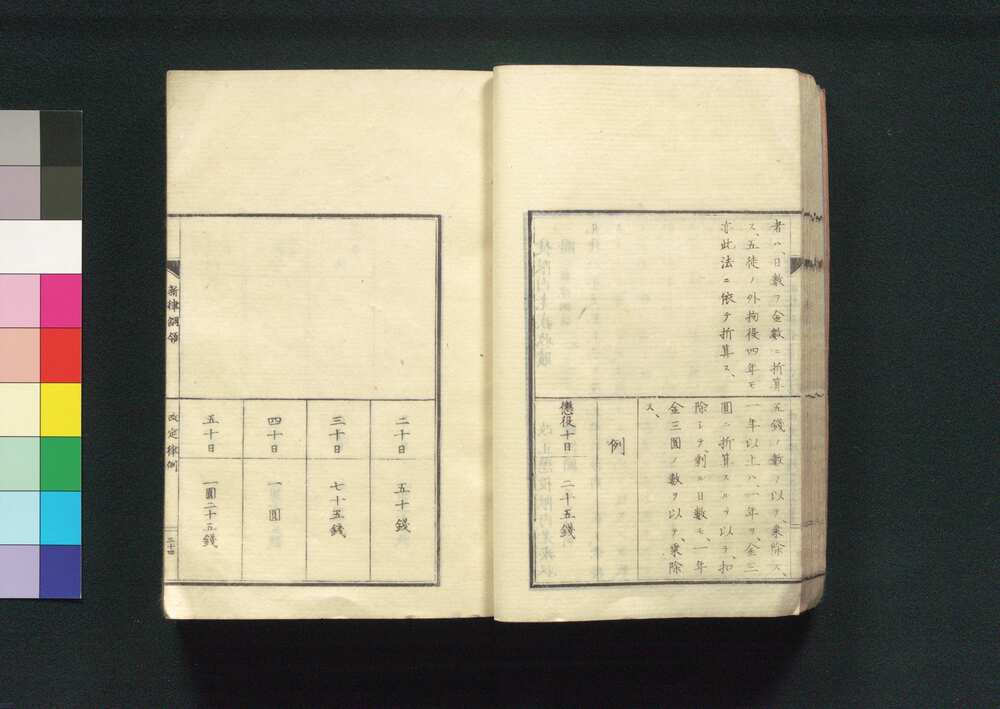 者ハ、日數ヲ金數ニ折算
ス、五徒ノ外拘役四年モ
亦此法ニ依テ折算ス、
五錢ノ數ヲ以テ乘除ス、
一年以上ハ、一年ヲ、金三
圓ニ折算スルヲ以テ、扣
除シテ、剩ル日數モ、一年
金三圓ノ數ヲ以テ、乘除
ス、
例
懲役十日 二十五錢
二十日 五十錢
三十日 七十五錢
四十日 一圓
五十日 一圓二十五錢
新律綱領
改定律例
二十四